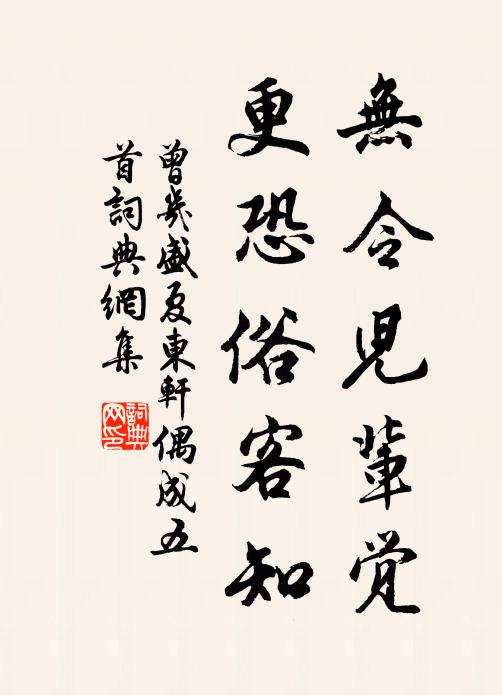 無令兒輩覺
更恐俗客知
曾幾盛夏東軒偶成五
首詞典網集
詞典
网印